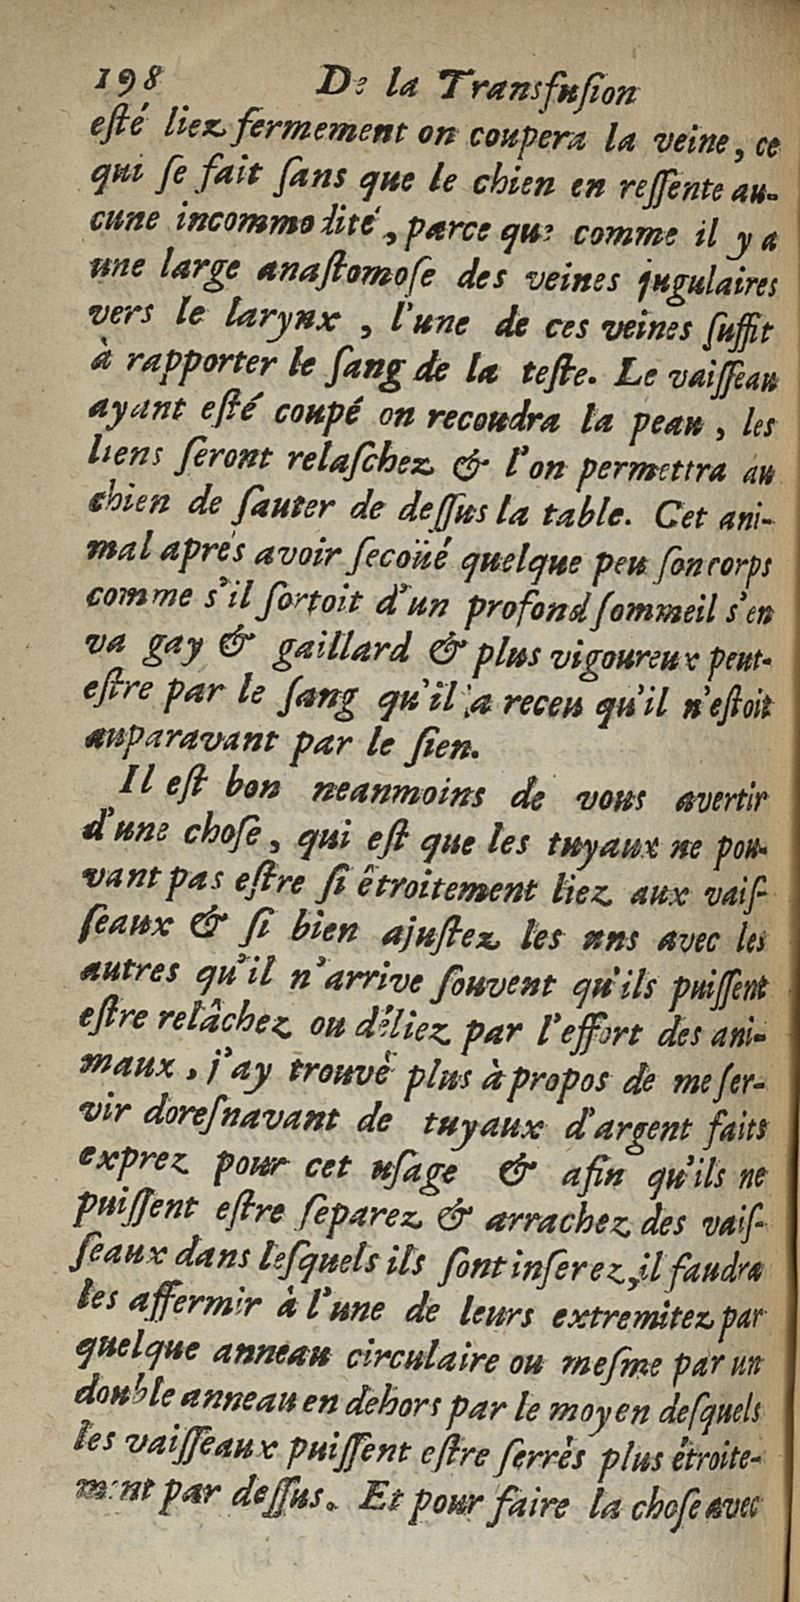 198 De la Transfuſion
eſté liez fermement on coupera la veine, ce
qui ſe fait ſans que le chien en reſſente au-
cune incommodité, parce que comme il y a
une large anaſtomoſe des veines jugulaires
vers le larynx, l'une de ces veines ſuffit
à rapporter le ſang de la teſte. Le vaiſſeau
ayant eſté coupé on recoudra la peau, les
liens ſeront relaſchez & l'on permettra au
chien de ſauter de deſſus la table. Cet ani-
mal aprés avoir ſecoüé quelque peu ſon corps
comme s'il ſortoit d'un profond ſommeil s'en
va gay & gaillard & plus vigoureux peut-
eſtre par le ſang qu'il a receu qu'il n'eſtoit
auparavant par le ſien.
Il eſt bon neanmoins de vous avertir
d'une choſe, qui eſt que les tuyaux ne pou-
vant pas eſtre ſi êtroitement liez aux vaiſ-
ſeaux & ſi bien ajuſtez les uns avec les
autres qu'il n'arrive ſouvent qu'ils puiſſent
eſtre relâchez ou déliez par l'effort des ani-
maux, j'ay trouvé plus à propos de me ſer-
vir doreſnavant de tuyaux d'argent faits
exprez pour cet uſage & afin qu'ils ne
puiſſent eſtre ſeparez & arrachez des vaiſ-
ſeaux dans leſquels ils ſont inſerez, il faudra
les affermir à l'une de leurs extremitez par
quelque anneau circulaire ou meſme par un
double anneau en dehors par le moyen deſquels
les vaiſſeaux puiſſent eſtre ſerrés plus étroite-
ment par deſſus. Et pour faire la choſe avec